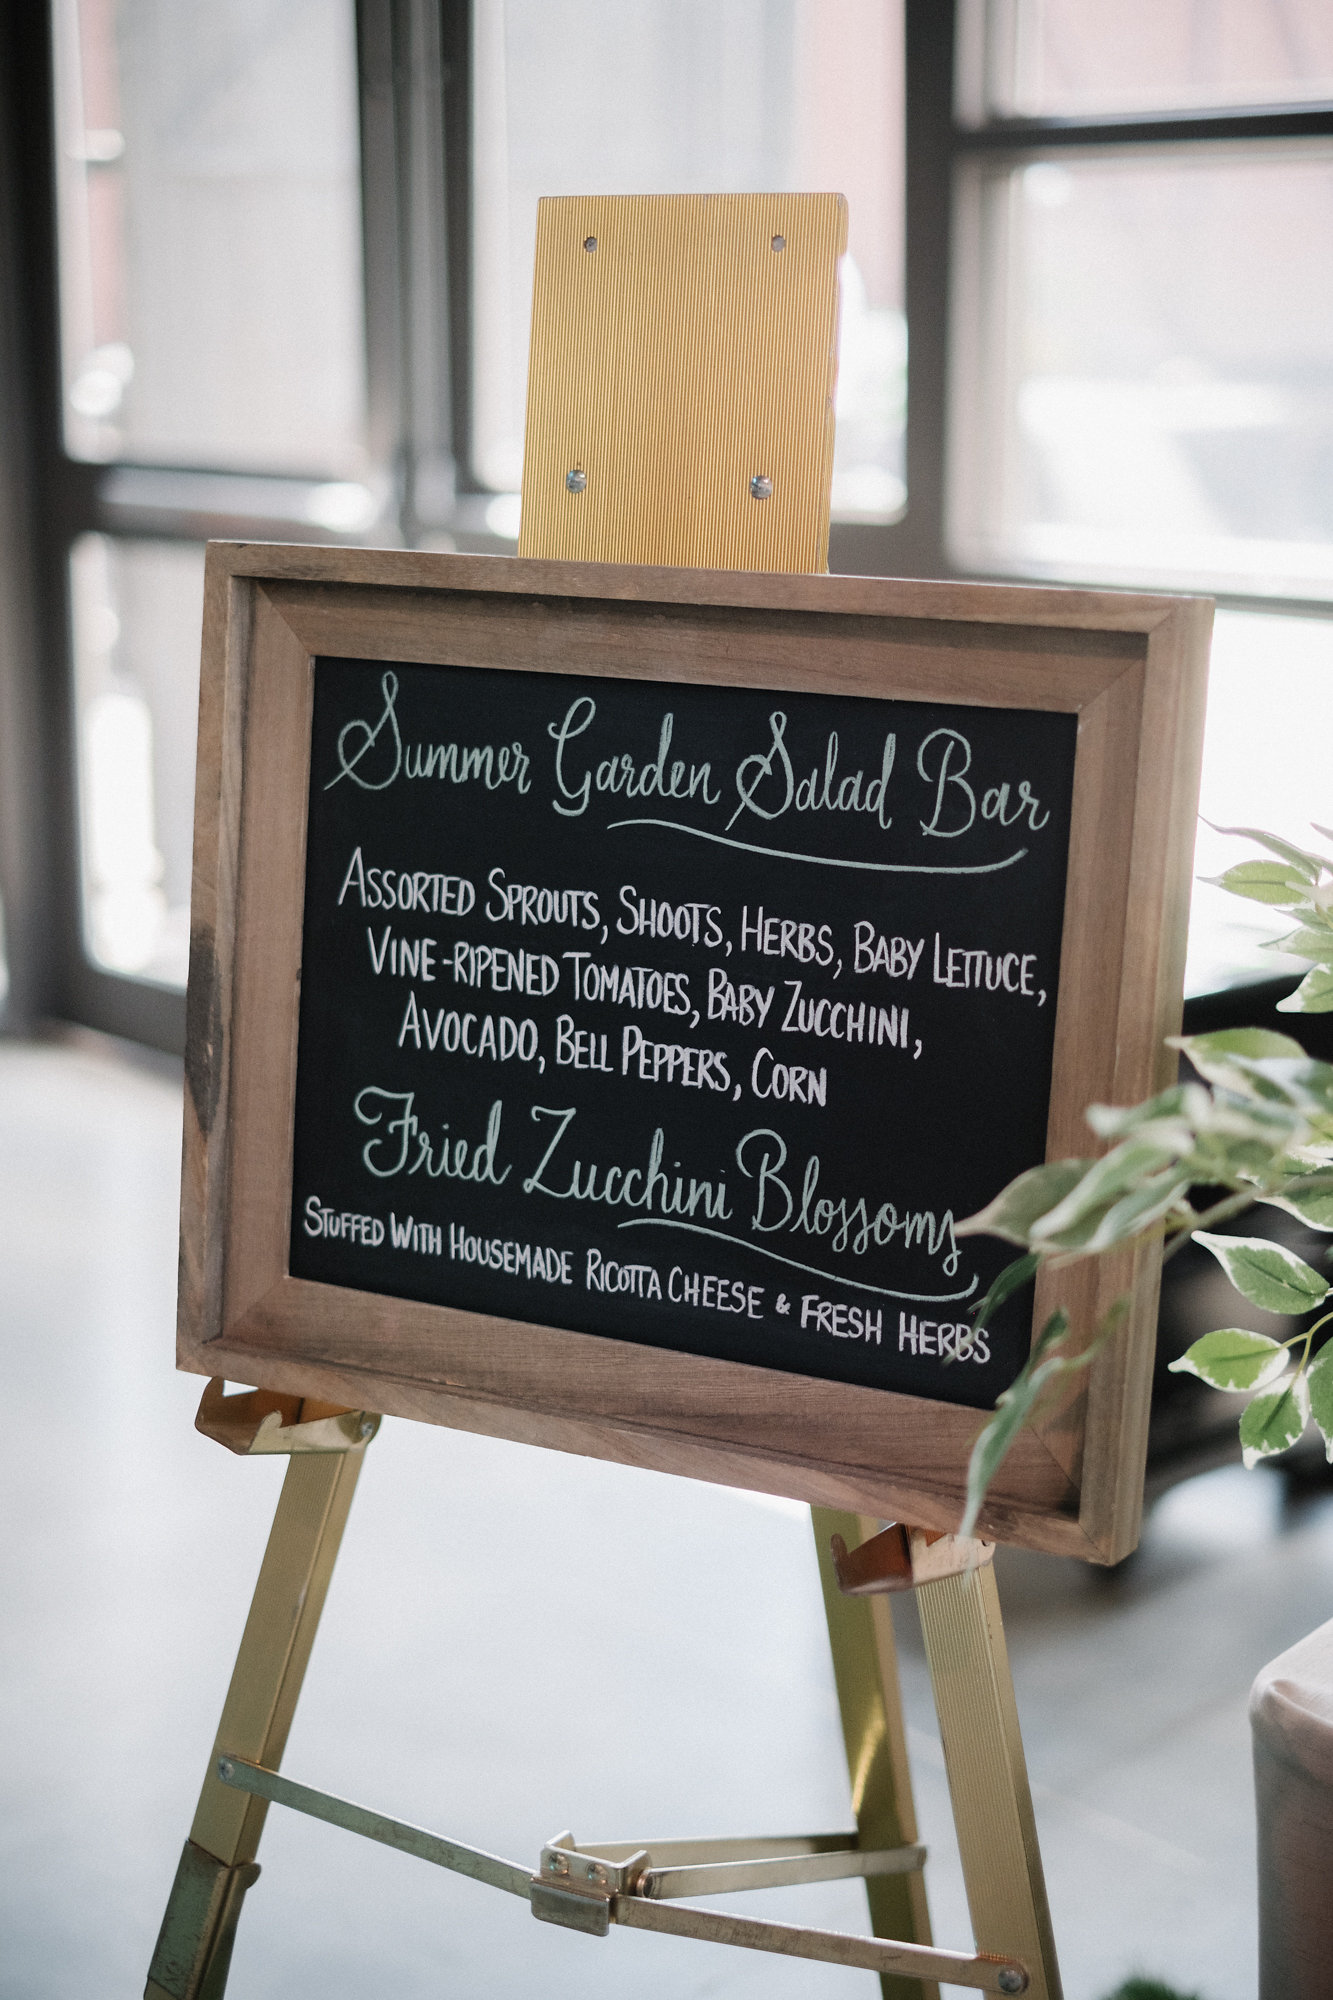 Summer Garden Salad Bar
Assorted Sprouts, Shoots, Herbs, Baby Lettuce,
Vine-ripened Tomatoes, Baby Zucchini,
Avocado, Bell Peppers, Corn
Fried Zucchini Blossoms
Stuffed With Housemade Ricotta Cheese & Fresh Herbs